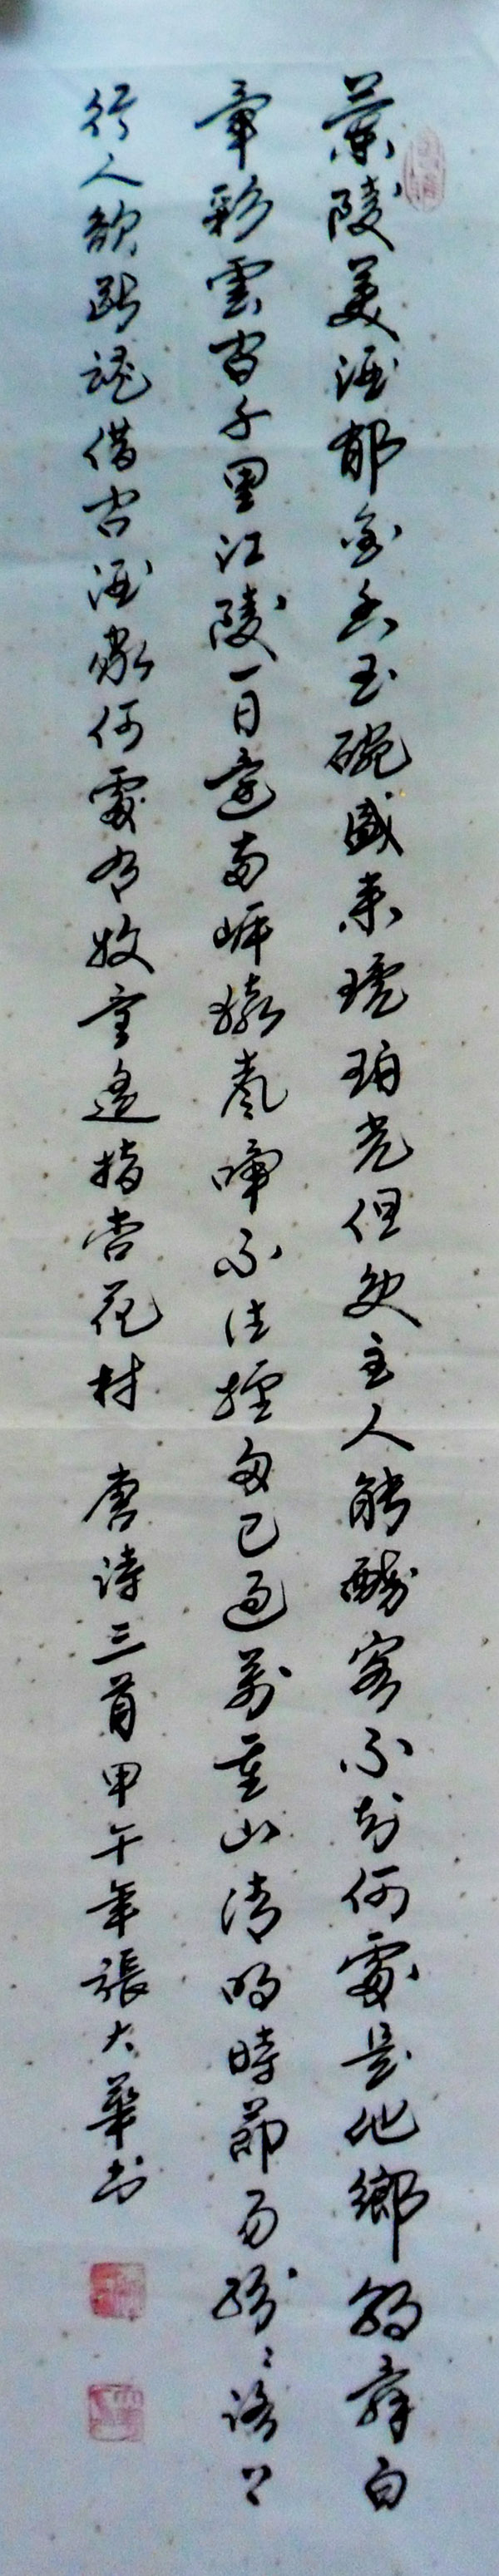 蘭陵美酒郁金香玉碗盛来琥珀光但使主人能醉客不知何處是他鄉朝辞白
帝彩雲間千里江陵一日還兩岸猿聲啼不住輕舟已過萬重山清明時節雨紛〻路上
行人欲斷魂借問酒家何處有牧童遥指杏花村 唐詩三首甲午年張大華书